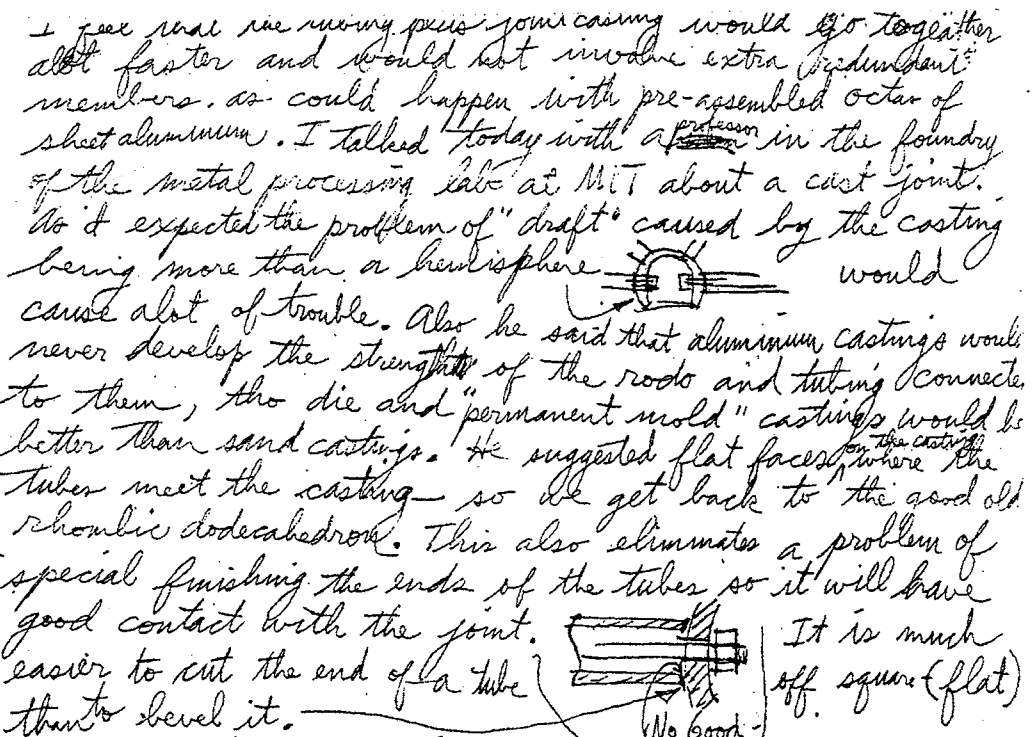 I feel that the nine piece joint casting would go together
alot faster and would not involve extra "redundant"
members. as could happen with pre-assembled octas of
sheet aluminum. I talked today with a professor in the foundry
of the metal processing lab at MIT about a cast joint.
As I expected the problem of "draft" caused by the casting
being more than a hemisphere would
cause alot of trouble. Also he said that aluminum castings would
never develop the strength of the rods and tubing connected
to them, tho die and "permanent mold" castings would be
better than sand castings. He suggested flat faces, on the casting where the
tubes meet the casting — so we get back to the good old
rhombic dodecahedron. This also eliminates a problem of
special finishing the ends of the tubes so it will have
good contact with the joint. It is much
easier to cut the end of a tube off square (flat)
than to bevel it.
No Good -